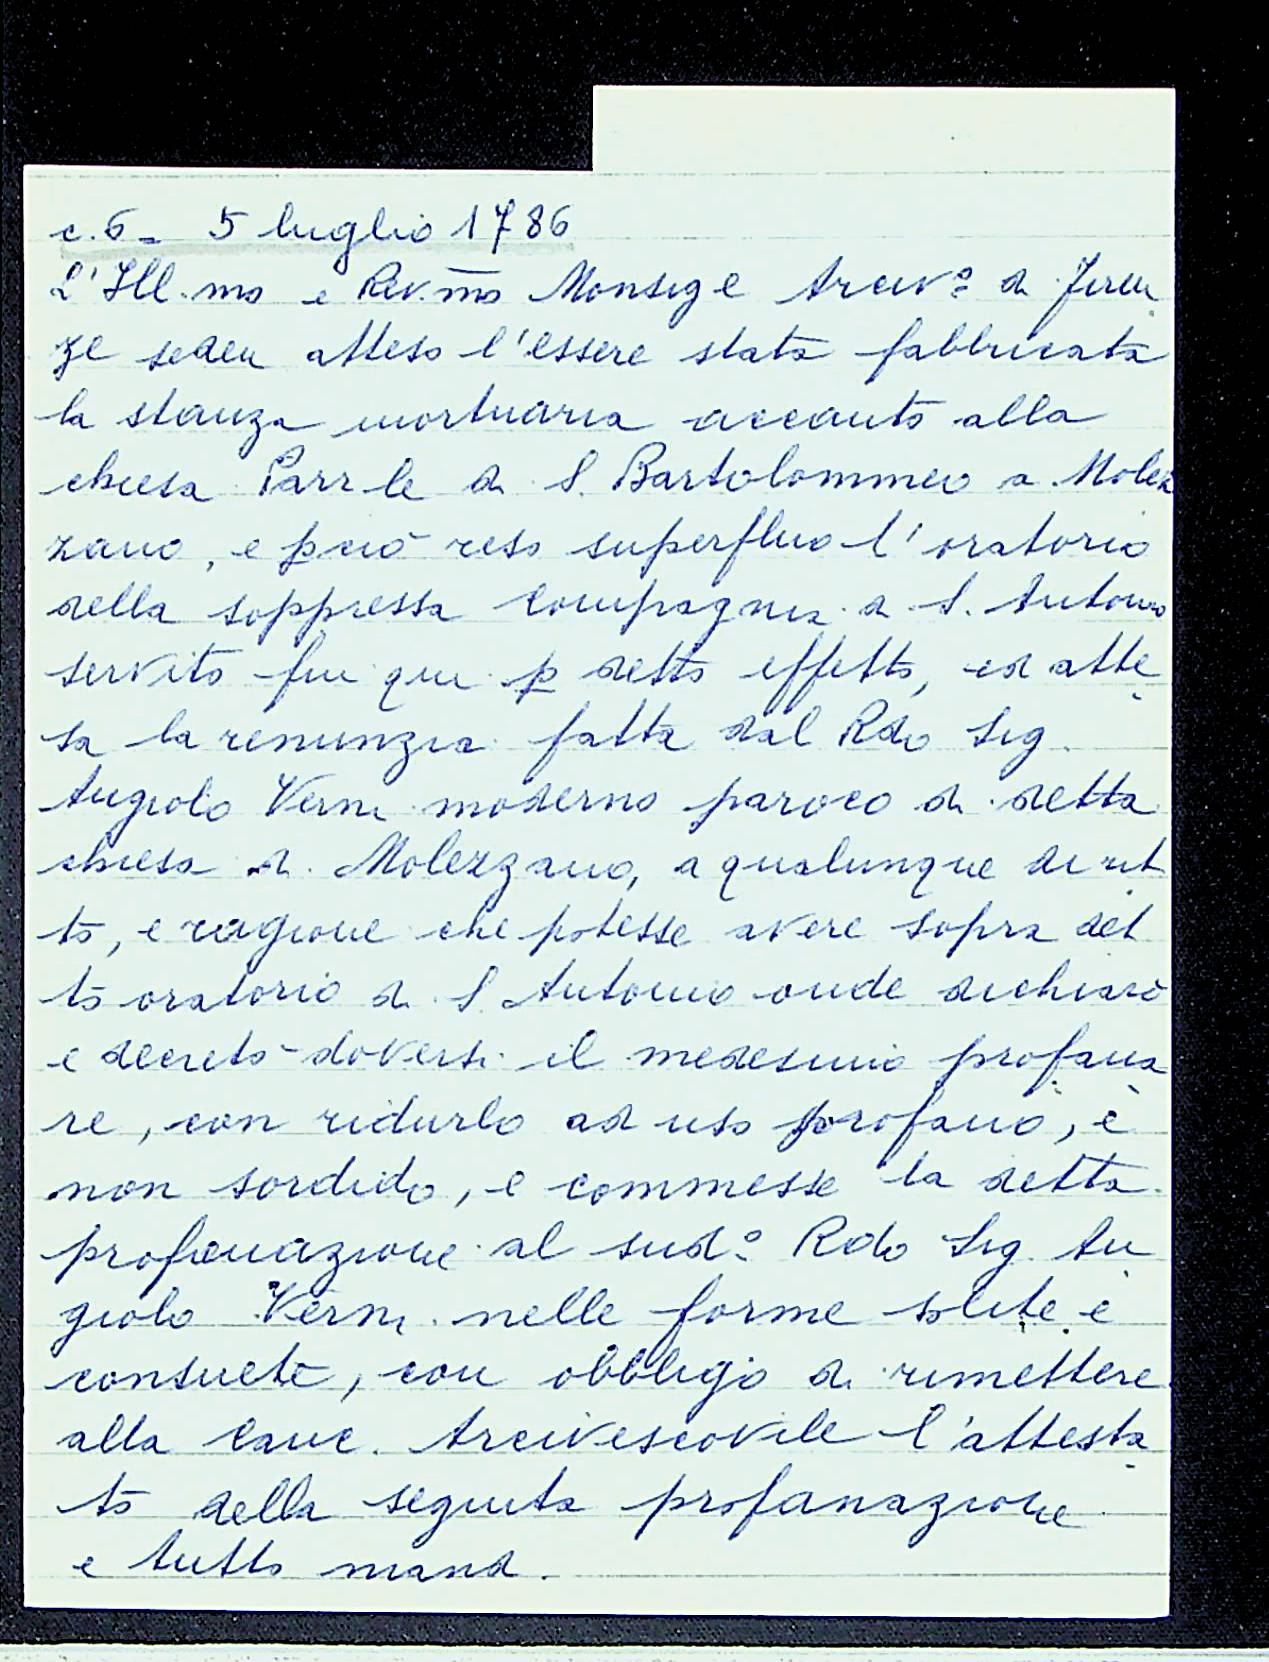 c. 6 = 5 luglio 1786
L'Ill.mo e Rev.mo Monsig e Arciv° di Firen
ze seden atteso l'essere stata fabbricata
la stanza mortuaria accanto alla
chiesa Parr le di S. Bartolommeo a Molez
zano, e p ciò reso superfluo l'oratorio
della soppressa Compagnia di S. Antonio
servito fin qui p detto effetto, ed atte
sa la renunzia fatta dal Rdo Sig.
Angiolo Verni moderno paroco di detta
chiesa di Molezzano, a qualunque dirit
to, e ragione che potesse avere sopra det
to oratorio di S. Antonio onde dichiarò
e decretò doversi il medesimo profana
re, con ridurlo ad uso profano, e
non sordido, e commesse la detta
profanazione al sud° Rdo Sig. An
giolo Verni nelle forme solite e
consuete, con obbligo di rimettere
alla Canc. Arcivescovile l'attesta
to della seguita profanazione
e tutto mand.